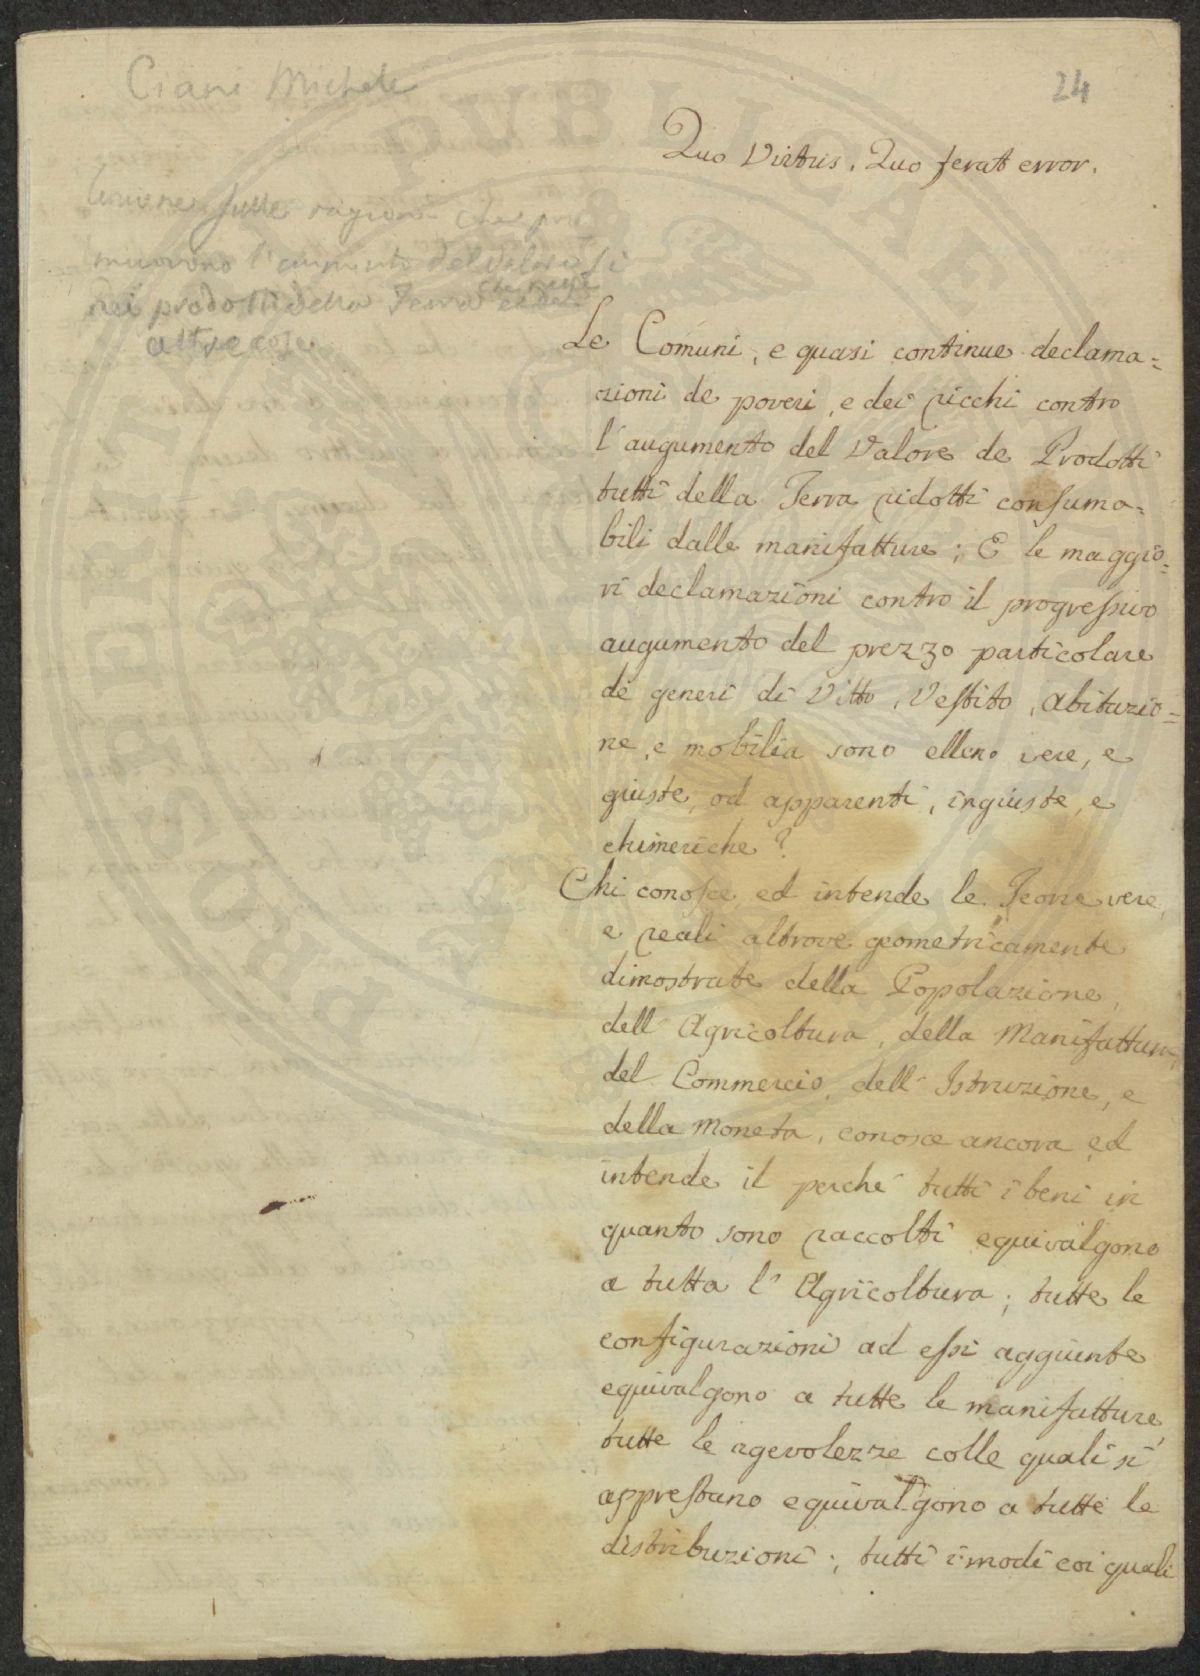 Ciani Michele
24
Quo Virtus, Quo ferat error.
sulle ragioni che
l'aumento del valore
nei prodotti della Terra
altre cose
Le Comuni, e quasi continue declama=
zioni de poveri, e dei ricchi contro
l'augumento del Valore de Prodotti
tutti della Terra ridotti consuma=
bili dalle manifatture; E le maggio=
ri declamazioni contro il progressivo
augumento del prezzo particolare
de generi di Vitto, Vestito, Abitazio=
ne, e mobilia sono elleno vere, e
giuste, od apparenti, ingiuste, e
chimeriche?
Chi conosce ed intende le Teorie vere,
e reali altrove geometricamente
dimostrate della Popolazione,
dell'Agricoltura, della Manifattura,
del Commercio, dell'Istruzione, e
della Moneta, conosce ancora ed
intende il perché tutti i beni in
quanto sono raccolti equivalgono
a tutta l'Agricoltura; tutte le
configurazioni ad essi aggiunte
equivalgono a tutte le manifatture,
tutte le agevolezze colle quali si
apprestano equivalgono a tutte le
distribuzioni; tutti i modi coi quali